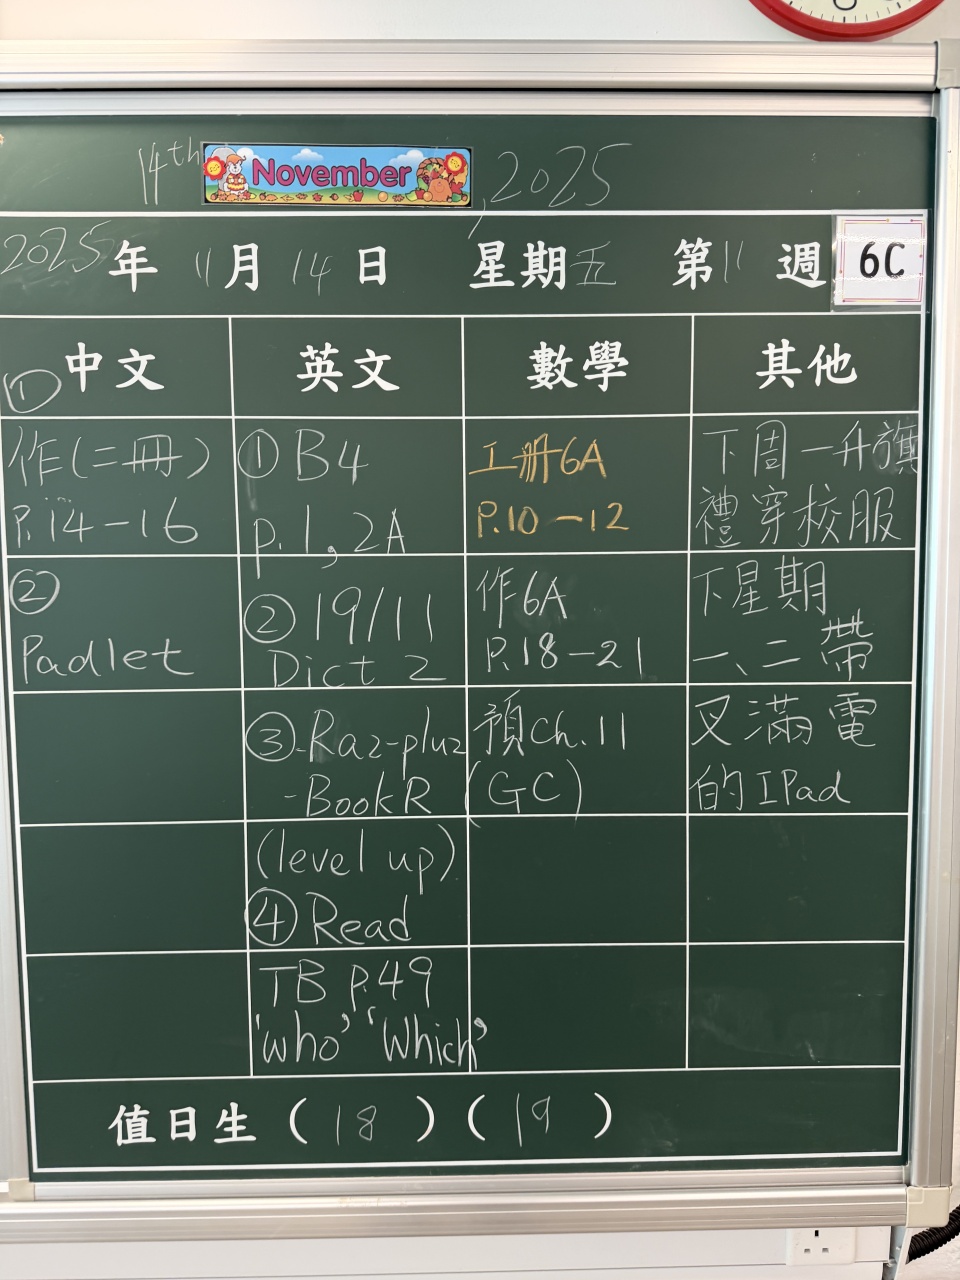 14th November, 2025
2025年11月14日 星期五 第11週 6C
中文
①
作(二冊)
P.14-16
②
Padlet
英文
① B4
p.1, 2A
② 19/11
Dict 2
③-Raz-pluz
-Book R
(level up)
④ Read
TB P.49
'who' 'Which'
數學
工冊6A
P.10-12
作6A
P.18-21
預ch.11
(GC)
其他
下周一升旗
禮穿校服
下星期
一、二帶
叉滿電
的IPad
值日生(18)(19)